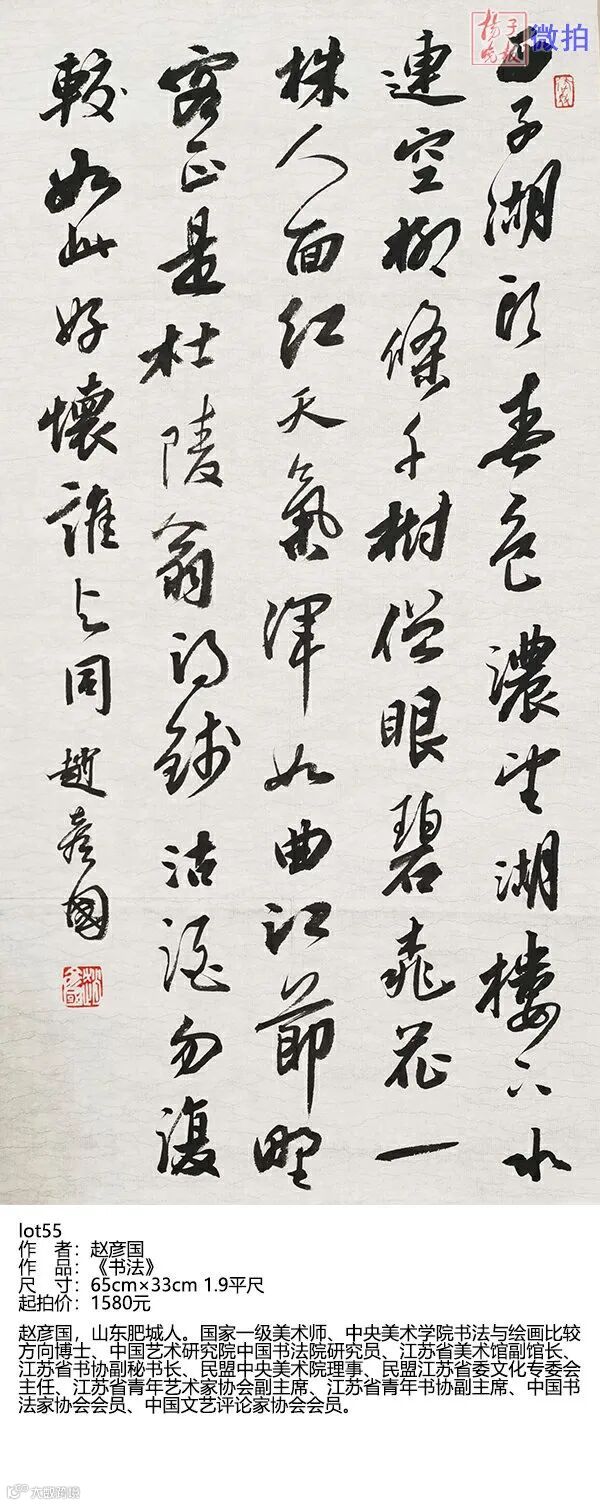 扬子晚报
微拍
西子湖头春色濃望湖樓下水
連空柳條千樹僧眼碧桃花一
株人面红天氣渾如曲江節野
客正是杜陵翁得錢沽酒勿復
較如此好懷誰与同 趙彦國
lot55
作 者：赵彦国
作 品：《书法》
尺 寸：65cm×33cm 1.9平尺
起拍价：1580元
赵彦国，山东肥城人。国家一级美术师、中央美术学院书法与绘画比较
方向博士、中国艺术研究院中国书法院研究员、江苏省美术馆副馆长、
江苏省书协副秘书长、民盟中央美术院理事、民盟江苏省委文化专委会
主任、江苏省青年艺术家协会副主席、江苏省青年书协副主席、中国书
法家协会会员、中国文艺评论家协会会员。